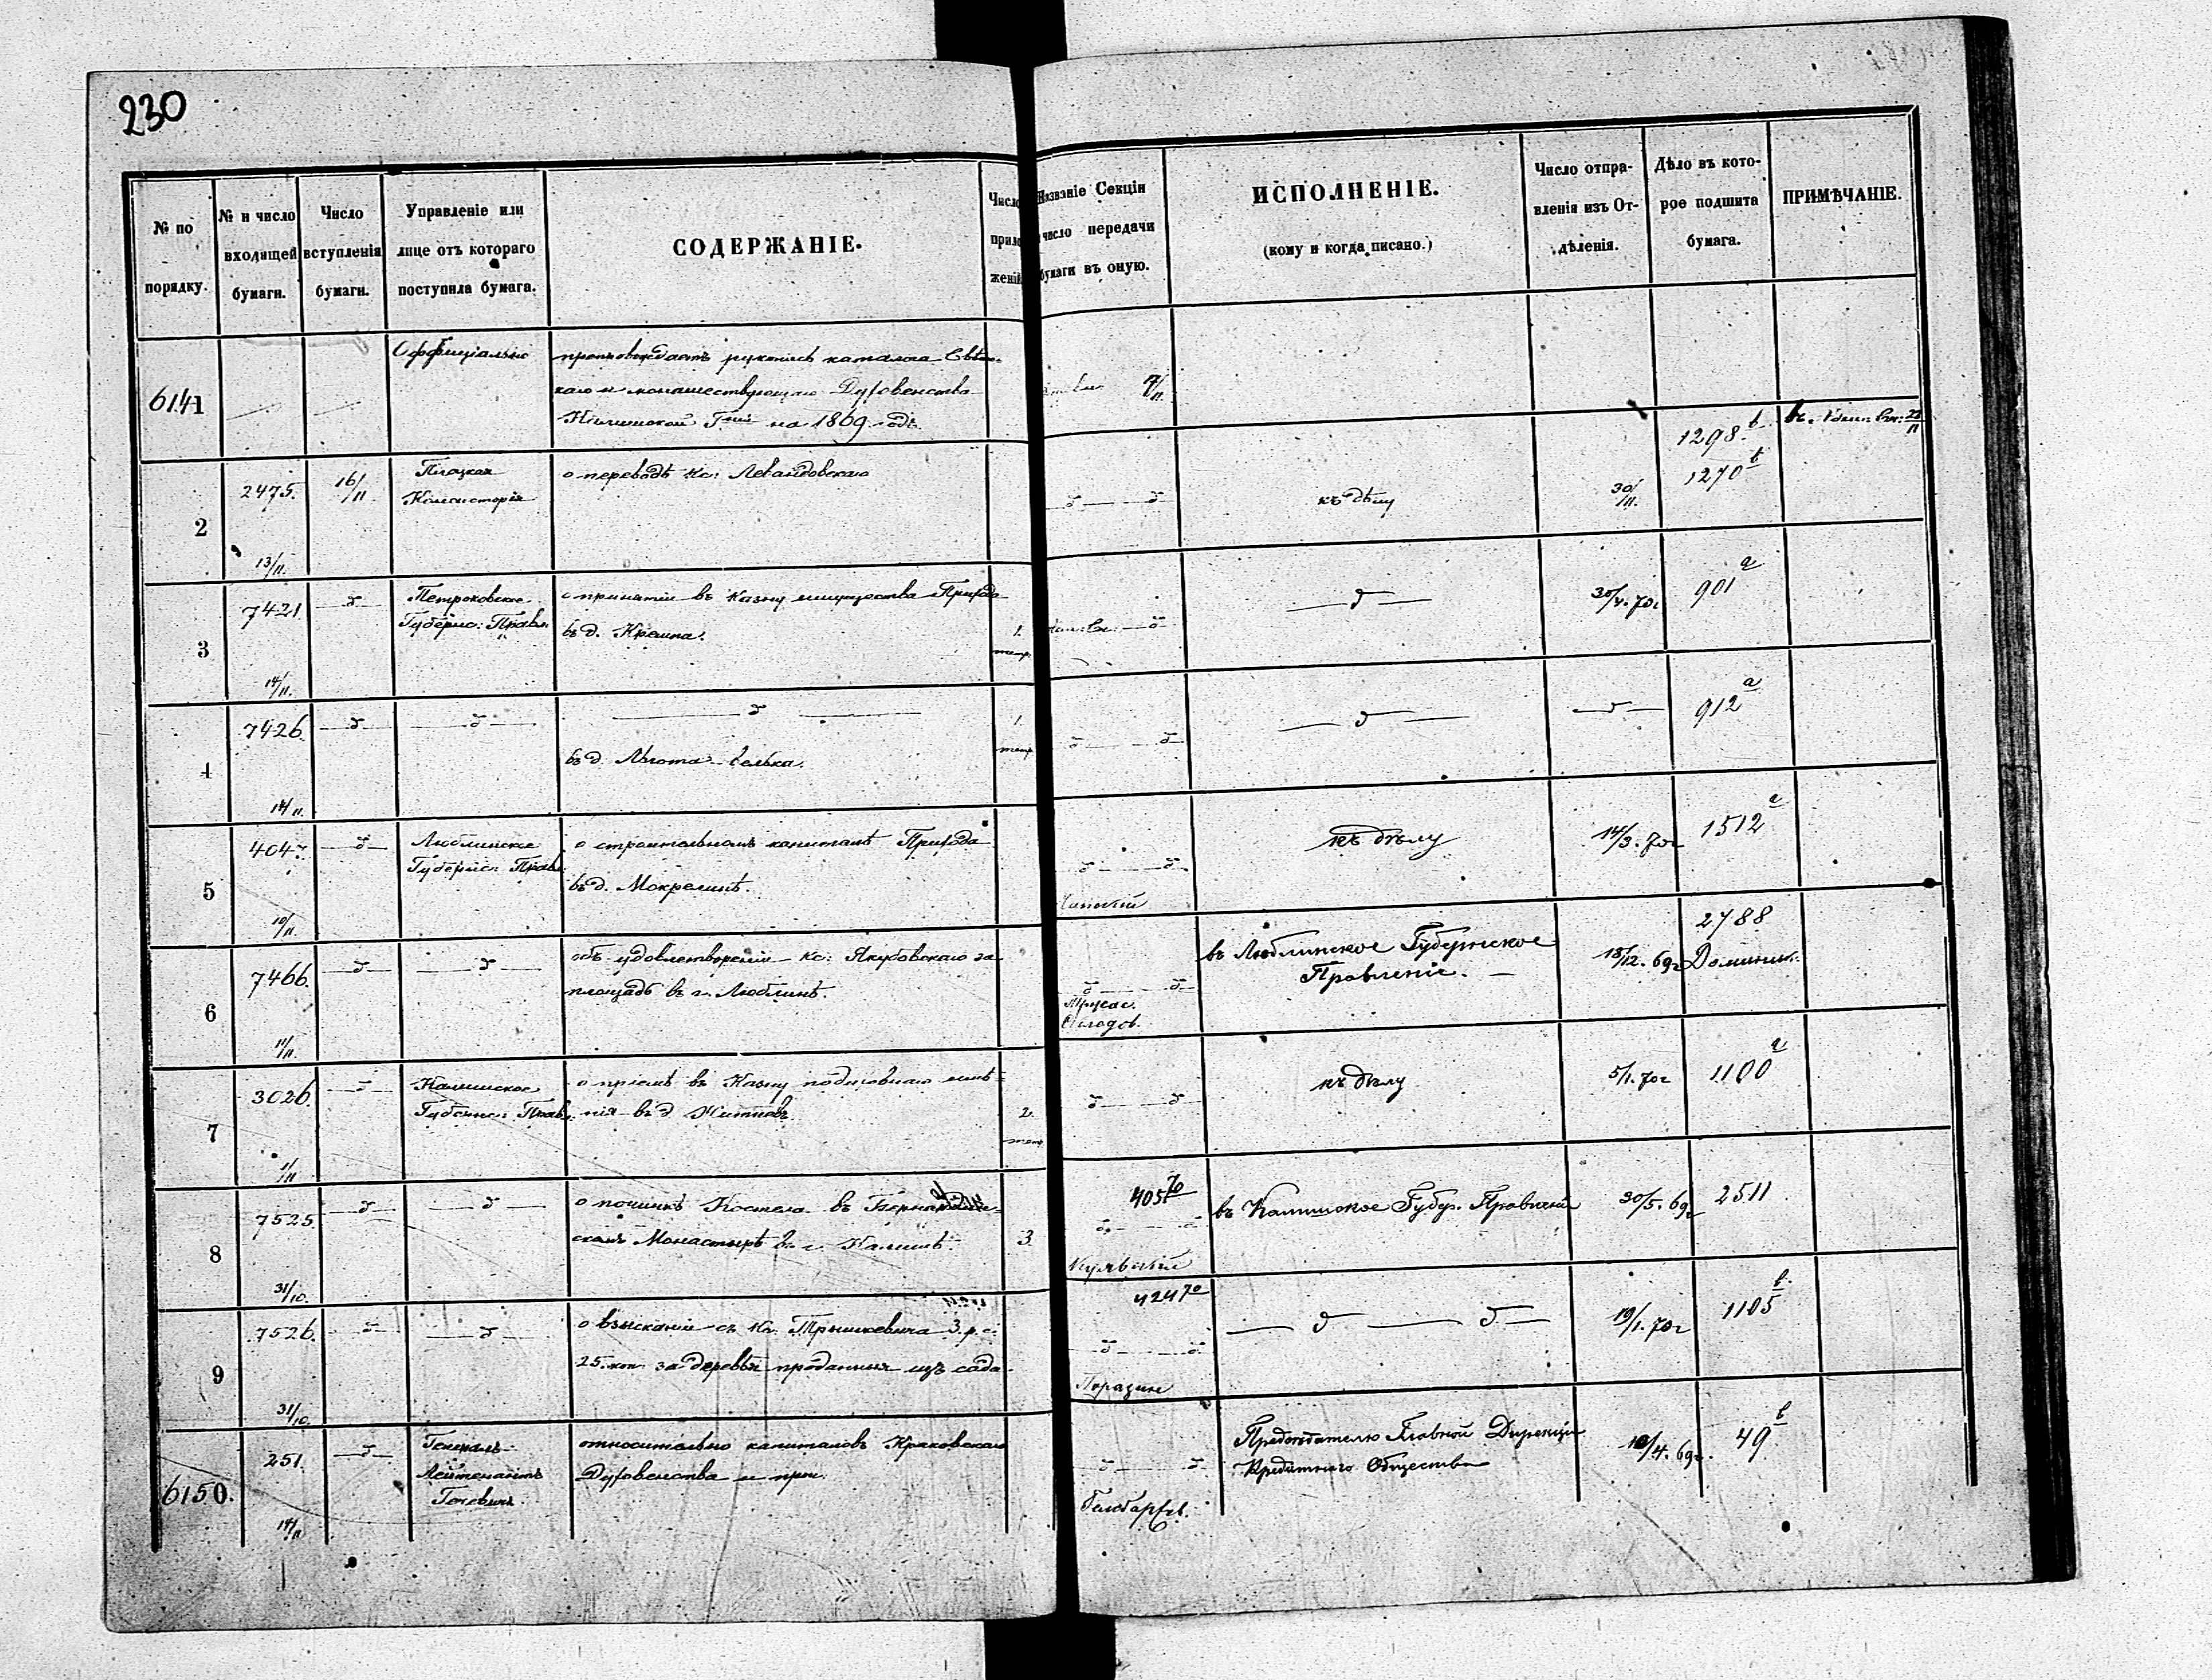 230
№ по порядку.
№ и число входящей бумаги.
Число вступленія бумаги.
Управленіе или лице отъ котораго поступила бумага.
СОДЕРЖАНІЕ.
Число прило женій
Названіе Секціи число передачи бумаги въ оную.
ИСПОЛНЕНІЕ.
(кому и когда писано.)
Число отпра-
вленія изъ От-
дѣленія.
Дѣло въ кото-
рое подшита
бумага.
ПРИМѢЧАНІЕ.
6141
Оффиціально
препровождаетъ рукопись каталога Свѣтс-
каго и монашествующаго Духовенства
Калишской Гніи на 1869 годъ.
7/11
1298 b
2
2475.
13/11.
16/11
Плоцкая
Консисторія
о переводѣ кс: Левандовскаго
д д
къ дѣлу
30/11.
1270 b
3
7421
14/11.
д
Петроковское
Губерн: Правл:
о принятіи въ Казну имущества Прихода
въ д. Кремпа.
1.
тетр.
д
д
30/4. 70г
901 a
4
7426.
14/11.
д
д
д
въ д. Лгота-Велька.
1.
тетр
д д
д
д
912 a
5
4047.
10/11.
д
Люблинское
Губернс: Правл:
о строительномъ капиталѣ Прихода
въ д. Мокрелипѣ.
д д
къ дѣлу
14/3. 70г
1512 a
6
7466.
11/11.
д
д
объ удовлетвореніи кс: Якубовскаго за
площадь въ г. Люблинѣ.
д д
въ Люблинское Губернское
Правленіе.
18/12. 69г
2788
Доминик.
7
3026.
1/11
д
Калишское
Губернс: Правл:
о пріемѣ въ Казну подуховнаго имѣ-
нія въ д
2.
тетр
д д
къ дѣлу
5/1. 70г
1100 a
8
7525.
31/10.
д
д
о починкѣ Костела въ Бернардин-
скомъ Монастырѣ въ г. Калишѣ.
3.
405 70
въ Калишское Губер. Правленіе
30/5. 69г
2511
9
7526.
31/10.
д
д
о взысканіи съ Кс. Трышкевича 3. р. с.
25. коп. за деревья проданныя изъ сада
424 70
д д
д д
19/1. 70г
1105 b
6150.
251.
14/11
д
Генералъ-
Лейтенантъ
относительно капиталовъ Краковскаго
Духовенства и проч.
д д
Предсѣдателю Главной Дирекціи
Кредитнаго Общества
10/4. 69г.
49 b